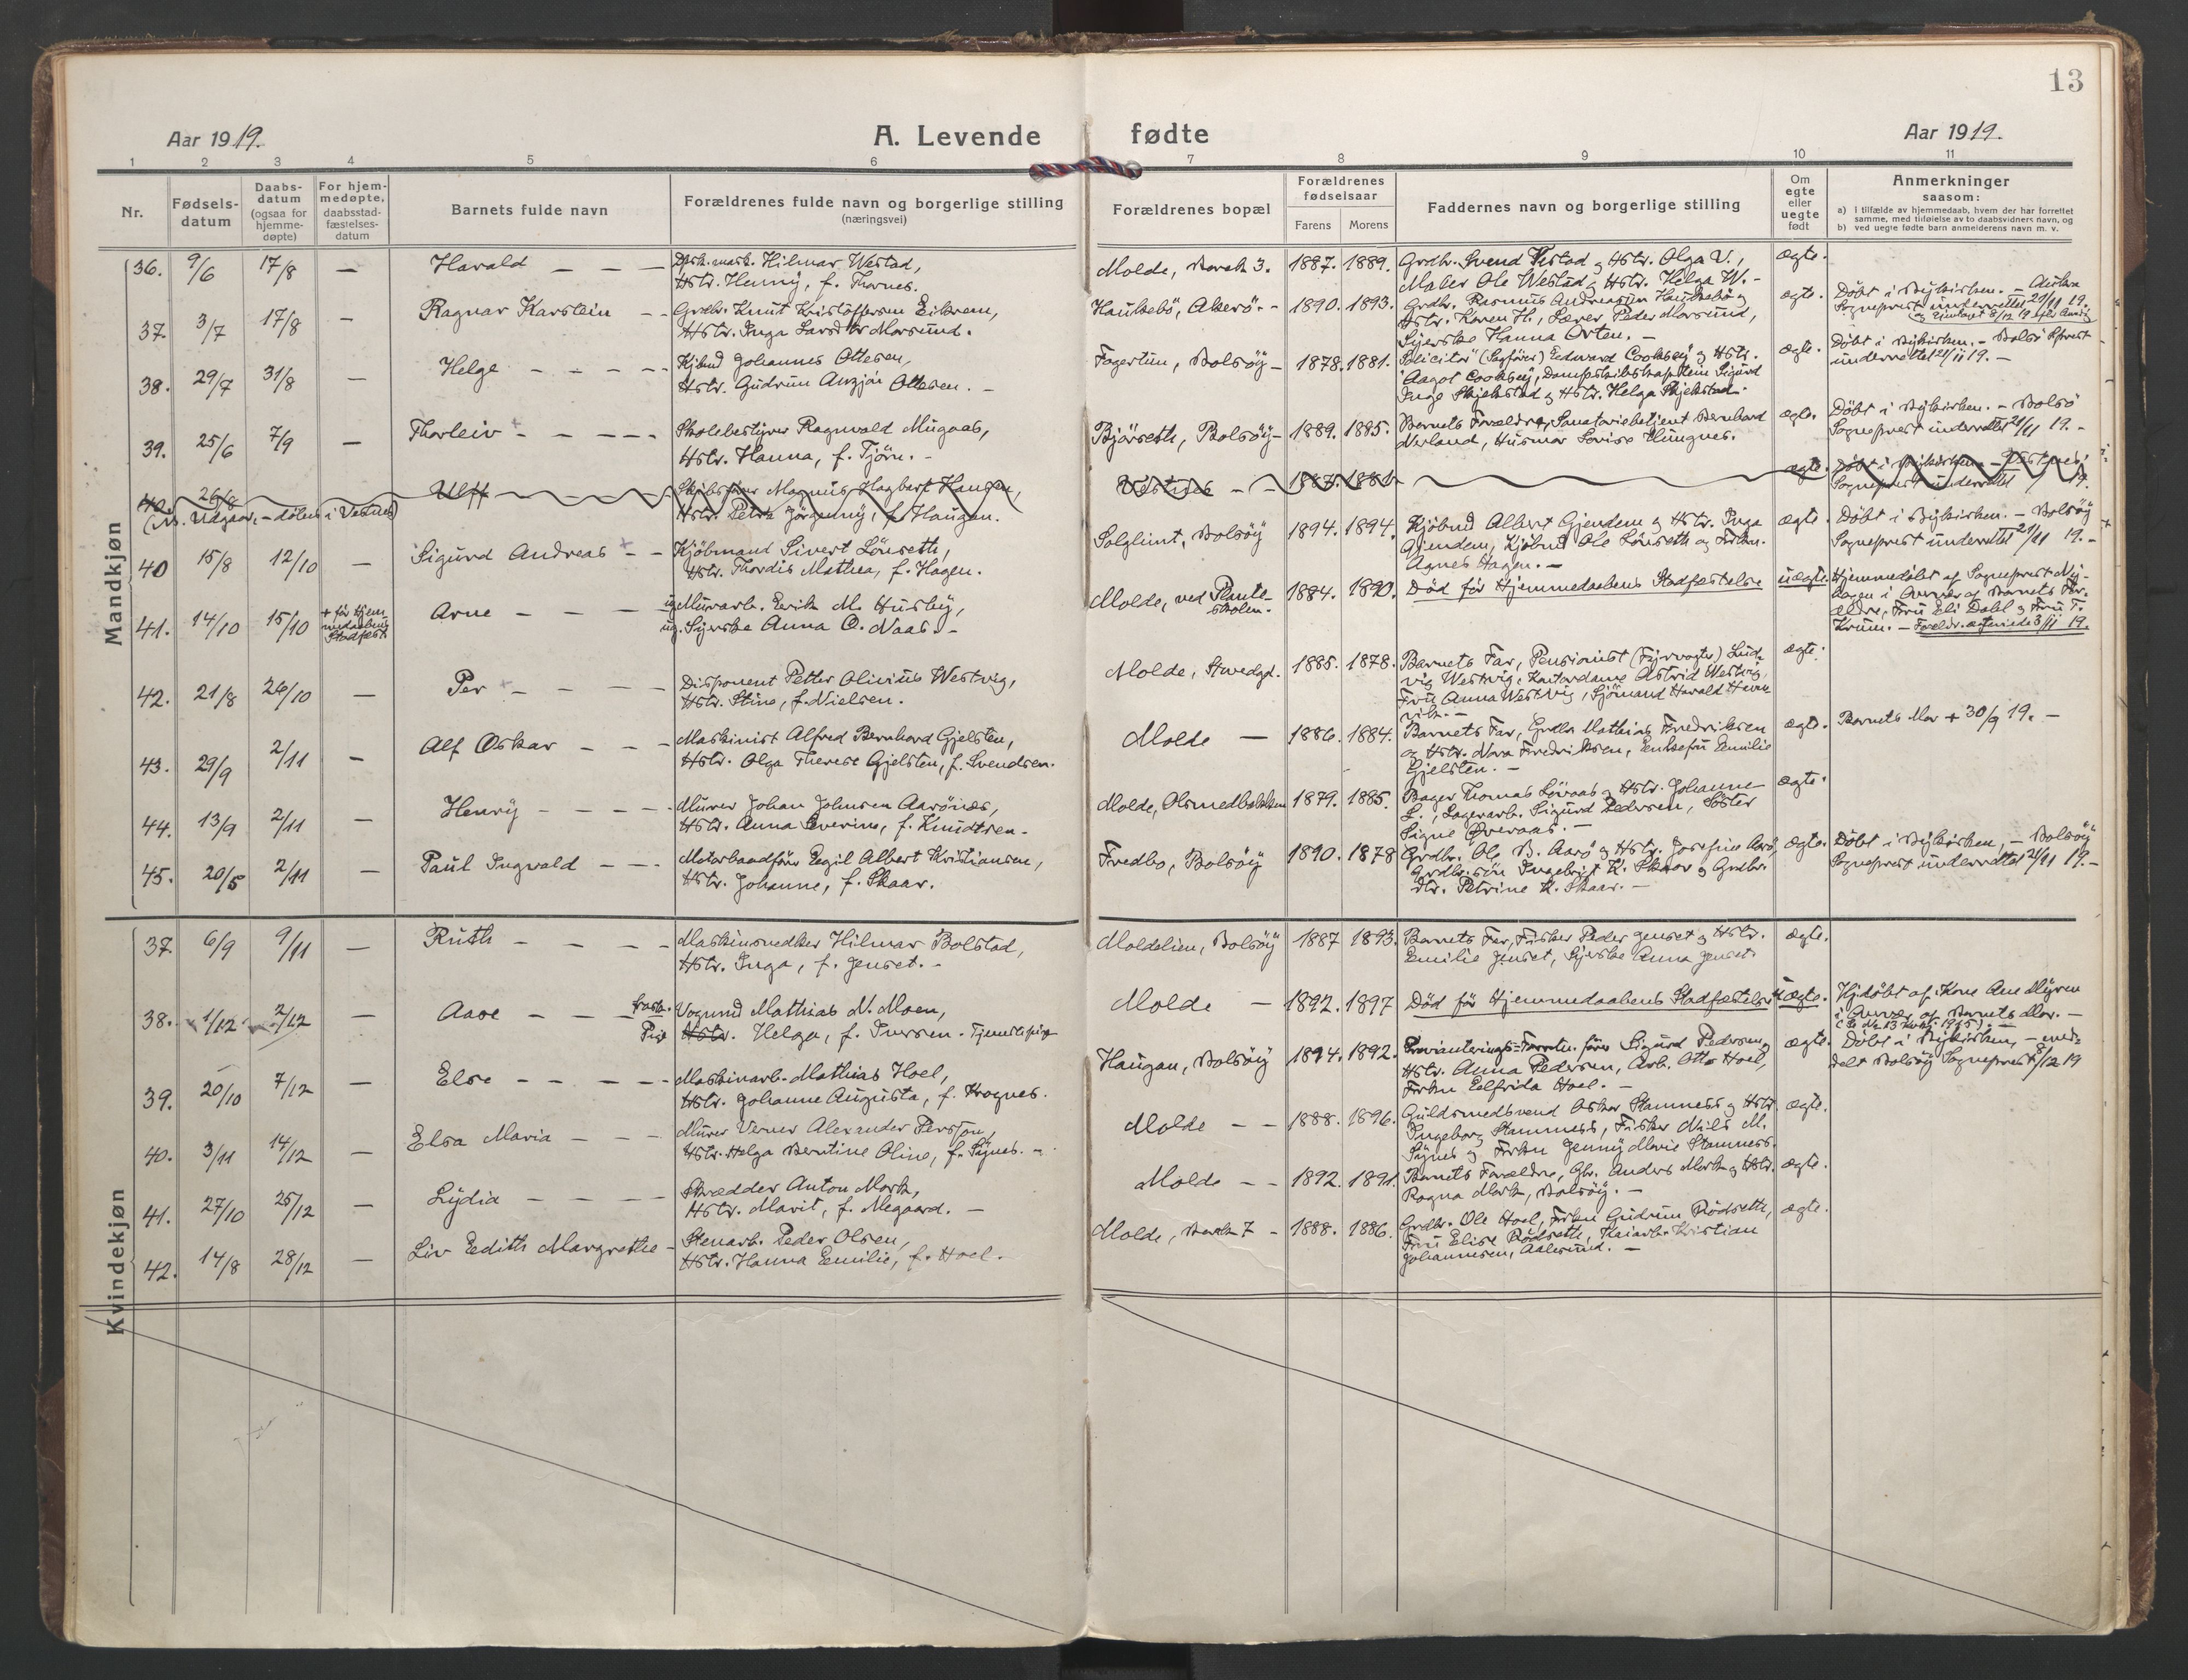 13
Aar 1919.
A. Levende fødte
Aar 1919.
1 2 3 4 5 6 7 8 9 10 11
Nr.
Fødsels-
datum
Daabs-
datum
(ogsaa for
hjemme-
døpte)
For hjem-
medøpte,
daabsstad-
fæstelses-
datum
Barnets fulde navn
Forældrenes fulde navn og borgerlige stilling
(næringsvei)
Forældrenes bopæl
Forældrenes
fødselsaar
Farens Morens
Faddernes navn og borgerlige stilling
Om
egte
eller
uegte
født
Anmerkninger
saasom:
a) i tilfælde av hjemmedaab, hvem der har forrettet
samme, med tilføielse av to daabsvidners navn, og
b) ved uegte fødte barn anmelderens navn m. v.
Mandkjøn
36. 9/6 17/8 — Harald — — — Hilmar Westad,
Hstr. Henny, f. Thornes.
Molde, 3. 1887. 1889. Grdbr. Svend Vestad & Hstr. Olga V.,
Maler Ole Westad & Hstr. Helga W. —
ægte.
37. 3/7 17/8 — Ragnar Karstein — — Grdbr. Knut Kristoffersen Eikrem,
Hstr. Inga Morsund.
Haukebö, Akerö. — 1890. 1893. Grdbr. Rasmus Andreassen Haukebö &
Hstr. Karen H., Lærer Peder Morsund,
Syerske Hanna Orten. —
ægte. Döbt i Bykirken. — Aukra
Sogneprest underrettet 21/11 19.
38. 29/7 31/8 — Helge — — — — Kjbmd Johannes Ottesen,
Hstr. Gudrun Ottesen. —
Fagertun, Bolsöy — 1878. 1881. Solicitor (Sagförer) Edward Cooksey & Hstr.
Aagot Cooksey, Dampskibskaptein Sigurd
Inge Skjelstad & Hstr. Helga Skjelstad.
ægte. Döbt i Bykirken. — Bolsö Sprest
underrettet 21/11 19. —
39. 25/6 7/9 — Thorleiv — — — — Skolebestyrer Ragnvald Mugaas,
Hstr. Hanna, f. Tjörn. —
Bjørseth, Bolsöy — 1889. 1885. Barnets Forældre, Sanatoriebetjent Bernhard
Nerland, Husmor Lovise Hungnes.
ægte. Döbt i Bykirken. — Bolsö
Sogneprest underrettet 21/11 19. —
40. 26/8 Ulff — Magnus Hagbart Haugen,
Hstr. Petra Jörgenny, f. Haugan.
(Nb. Udgaar, — döbes i Vestnes)
Vestnes — — 1887. 1881 ægte. Döbt i Bykirken. — Vestnes
Sogneprest underrettet / 19.
40 15/8 12/10 — Sigurd Andreas — — Kjöbmand Sivert Lönseth,
Hstr. Thordis Mathea, f. Hagen.
Solglimt, Bolsöy 1894. 1894. Kjöbmd Albert Gjendem & Hstr. Inga
Gjendem, Kjöbmd Ole Lönseth og Frkn.
Agnes Hagen. —
ægte. Döbt i Bykirken. — Bolsöy
Sogneprest underrettet 21/11 19. —
41. 14/10 15/10 + för Hjem
medaabens
Stadfæst. Arne — — — ug. Murarb. Erik M. Husby,
ug. Syerske Anna O. Naas. —
Molde, ved Plante-
skolen. 1884. 1890. Död för Hjemmedaabens Stadfæstelse
uægte. Hjemmedöbt af Sogneprest Ny-
hagen i Nærvær af Barnets For-
ældre, Fru Eli Dahl & Fru T.
Krum. — Foreldr. ægteviede 3/11 19.
42. 21/8 26/10 — Per — — — — Disponent Petter Olivius Westvig,
Hstr. Stine, f. Nielsen.
Molde, Storedgd. 1885. 1878. Barnets Far, Pensionist (Fyrvogter) Lud-
vig Westvig, Kontordame Astrid Westvig,
Fru Anna Westvig, Sjömand Harald
ægte.
43. 29/9 2/11 — Alf Oskar — — — Maskinist Alfred Bernhard Gjelsten,
Hstr. Olga Therese Gjelsten, f. Svendsen.
Molde — 1886. 1884. Barnets Far, Grdbr Mathias Fredriksen
og Hstr. Mara Fredriksen, Enkefru Emilie
Gjelsten. —
ægte. Barnets Mor + 30/9 19. —
44. 13/9 2/11 — Henry — — — — Murer Johan Johnsen Aarönes,
Hstr. Anna Severine, f. Knudtsen —
Molde, Olsmedbakken 1879. 1885. Bager Thomas Lövaas & Hstr. Johanne
L., Lagerarb. Sigurd Pedersen, Söster
Signe Överaas. —
ægte.
45. 20/5 2/11 — Paul Ingvald — — — Motorbaadförer Egil Albert Kristiansen,
Hstr. Johanne, f. Skaar.
Fredbo, Bolsöy 1890. 1878 Grdbr. Ole B. Aarö & Hstr. Josefine Aarö,
Grdbr.sön Ingebrigt K. Skaar & Grdbr.
dtr. Petrine K. Skaar. —
ægte. Döbt i Bykirken, — Bolsöy
Sogneprest underrettet 21/11 19. —
Kvindekjøn
37. 6/9 9/11 — Ruth — — — — Maskinsnedker Hilmar Bolstad,
Hstr. Inga, f. Jenset. —
Moldelien, Bolsöy 1887 1893. Barnets Far, Fisker Peder Jenset & Hstr.
Emilie Jenset, Syerske Anna Jenset.
ægte.
38. 1/12 2/12 — Aase — — — frask. Vognmd Mathias N. Moen,
Pige Hstr. Helga, f. Iversen. Tjenestepige
Molde — 1892. 1897 Död för Hjemmedaabens Stadfæstelse
uægte. Hjdöbt af Kone Ane Myren
i Nærvær af Barnets Mor. —
39. 20/10 7/12 — Else — — — — Maskinarb. Mathias Hoel,
Hstr. Johanne Augusta, f. Krognes.
Haugan, Bolsöy 1894. 1892. Provianterings-Forretn. förer Sigurd Pedersen &
Hstr. Anna Pedersen, Arb. Otto Hoel,
Frkn Elfrida Hoel. —
ægte. Döbt i Bykirken, — med-
delt Bolsöy Sogneprest 8/12 19
40. 3/11 14/12 — Elsa Maria — — — Murer Verner Alexander Persson,
Hstr. Helga Berntine Oline, f. Synes. —
Molde — — 1888. 1896. Guldsmedsvend Oskar Stamness & Hstr.
Ingeborg Stamness, Fisker Nils M.
Synes & Frkn Jenny Marie Stamness.
ægte.
41. 27/10 25/12 — Lydia — — — — Skrædder Anton Mork,
Hstr. Marit, f. Megaard. —
Molde — — 1892. 1891. Barnets Forældre, Gbr. Anders Mork & Hstr.
Ragna Mork, Bolsöy. —
ægte.
42. 14/8 28/12 — Liv Edith Margrethe — Stenarb. Peder Olsen,
Hstr. Hanna Emilie, f. Hoel.
Molde, 7 — 1888. 1886. Grdbr. Ole Hoel, Frkn Gudrun Rödseth,
Fru Elise Rödseth, Kaiarb. Kristian
Johannesen, Aalesund. —
ægte.